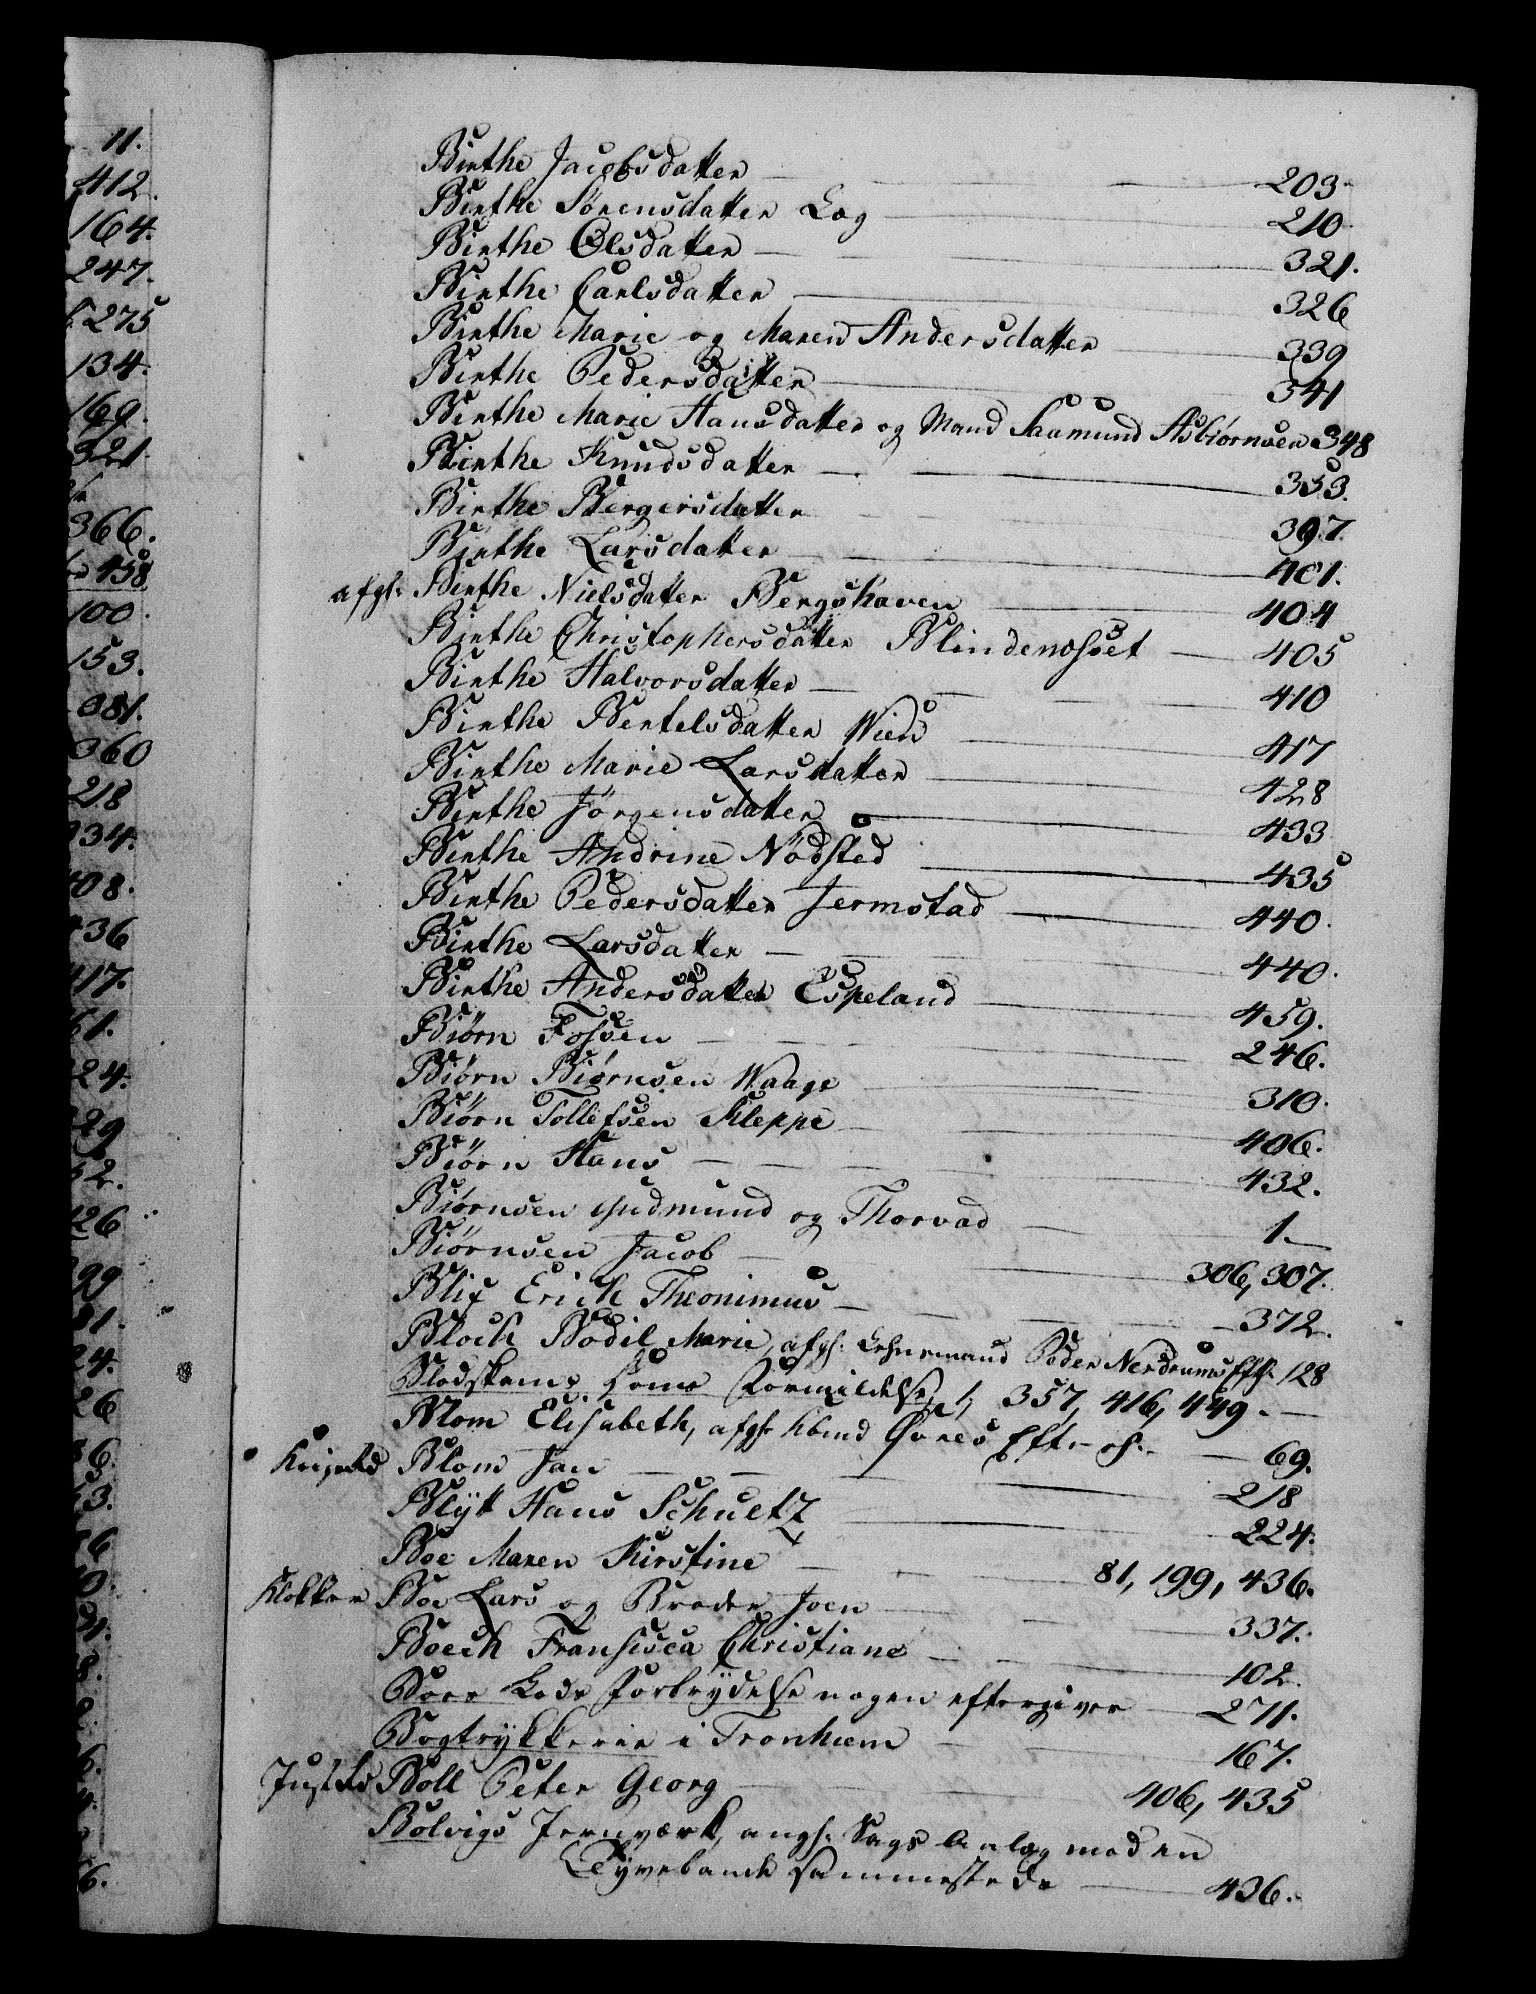 11.
412.
164.
247.
275
134.
169.
321.
366.
458
100.
153.
381.
360
218
34.
08.
36
417.
1.
24.
29
2.
26
99
81.
24.
26
6.
3.
6
Birthe Jacobsdatter — 203.
Birthe Sörensdatter Lag — 210.
Birthe Olsdatter — 321.
Birthe Carlsdatter — 326
Birthe Marie og Maren Andersdatter — 339
Birthe Pedersdatter — 341
Birthe Marie Hansdatter og Mand Saamund Asbiörnsen 348
Birthe Knudsdatter — 353.
Birthe Bergersdatter — 397.
Birthe Larsdatter — 401.
afgl: Birthe Nielsdatter Bergshaven — 404
Birthe Christophersdatter Blindenæsset — 405
Birthe Halvorsdatter — 410
Birthe Bertelsdatter Wies — 417
Birthe Marie Larsdatter — 428
Birthe Jörgensdatter — 433
Birthe Andrine Nödsted — 435
Birthe Pedersdatter Jermstad — 440.
Birthe Larsdatter — 440.
Birthe Andersdatter Espeland — 459.
Biörn Fossen — 246.
Biörn Biörnsen Waage — 310.
Biörn Tollefsen Kleppe — 406.
Biörn Hans — 432.
Biörnsen Gudmund og Thorvad — 1.
Biörnsen Jacob — 306, 307.
Blix Erich Theonimus — 372.
Bloch Bodil Marie, afgl. Lehnsmand Peder Nerdrums Eft. 128
Blodskams Doms Formildelse, 1, 357, 416, 449. —
Blom Elisabeth, afgl. Kbmd Øvres Eftr. — 69.
Krigsrd Blom Jan — 218
Blÿtt Hans Schultz — 224.
Boe Maren Kirstine — 81, 199, 436.
Klokker Boe Lars og Broder Joen — 337.
Boeck Fransisca Christiane — 102.
Boers Lods Forbrydelse nogen eftergiver — 271.
Bogtrykkerie i Tronhiem — 167.
Justrd Boll Peter Georg — 406, 435
Bolvigs Jernværk, angl. Sags Anlæg mod en
Tyvebande sammestede — 436.